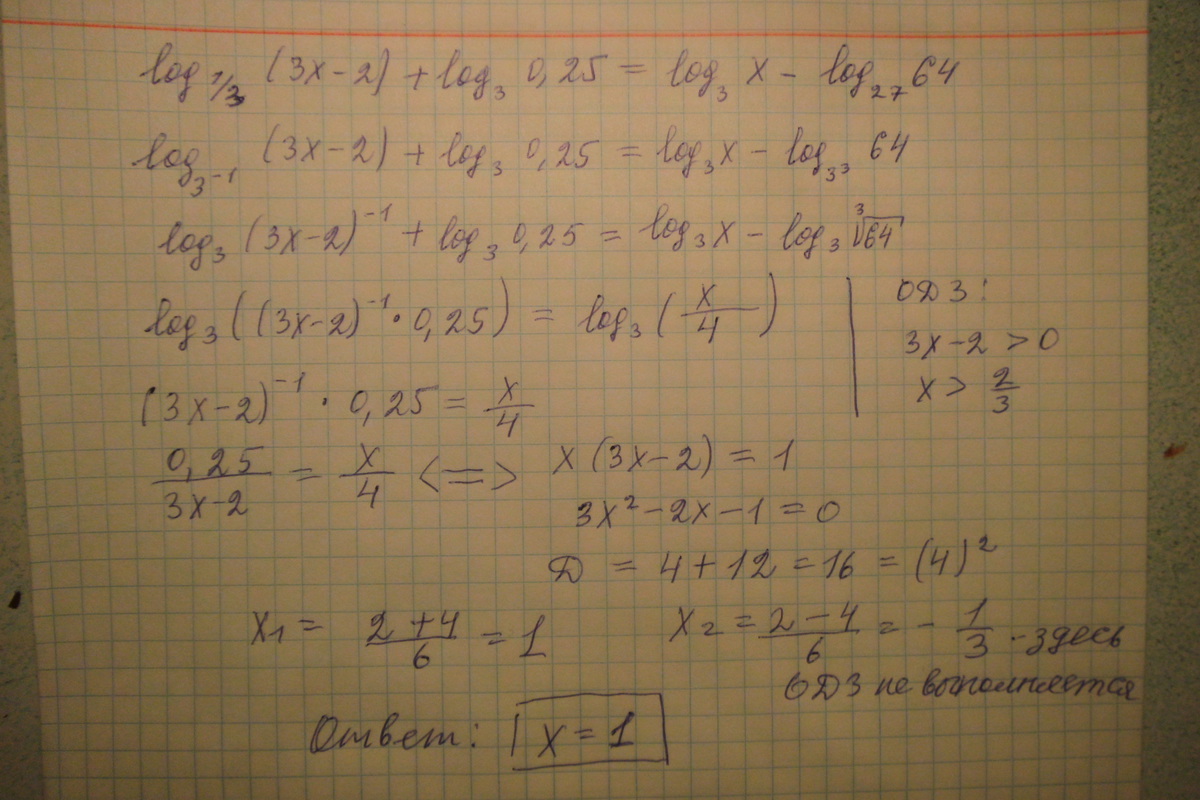 log₁/₃ (3x-2) + log₃ 0,25 = log₃ x - log₂₇ 64
log₃₋₁ (3x-2) + log₃ 0,25 = log₃ x - log₃³ 64
log₃ (3x-2)⁻¹ + log₃ 0,25 = log₃ x - log₃ ³√64
log₃ ((3x-2)⁻¹ · 0,25) = log₃ (x/4)
ОДЗ:
3x-2 > 0
x > 2/3
(3x-2)⁻¹ · 0,25 = x/4
0,25/(3x-2) = x/4 <=> x (3x-2) = 1
3x² - 2x - 1 = 0
D = 4 + 12 = 16 = (4)²
x₁ = (2+4)/6 = 1
x₂ = (2-4)/6 = - 1/3 - здесь
ОДЗ не выполняется
Ответ: x = 1